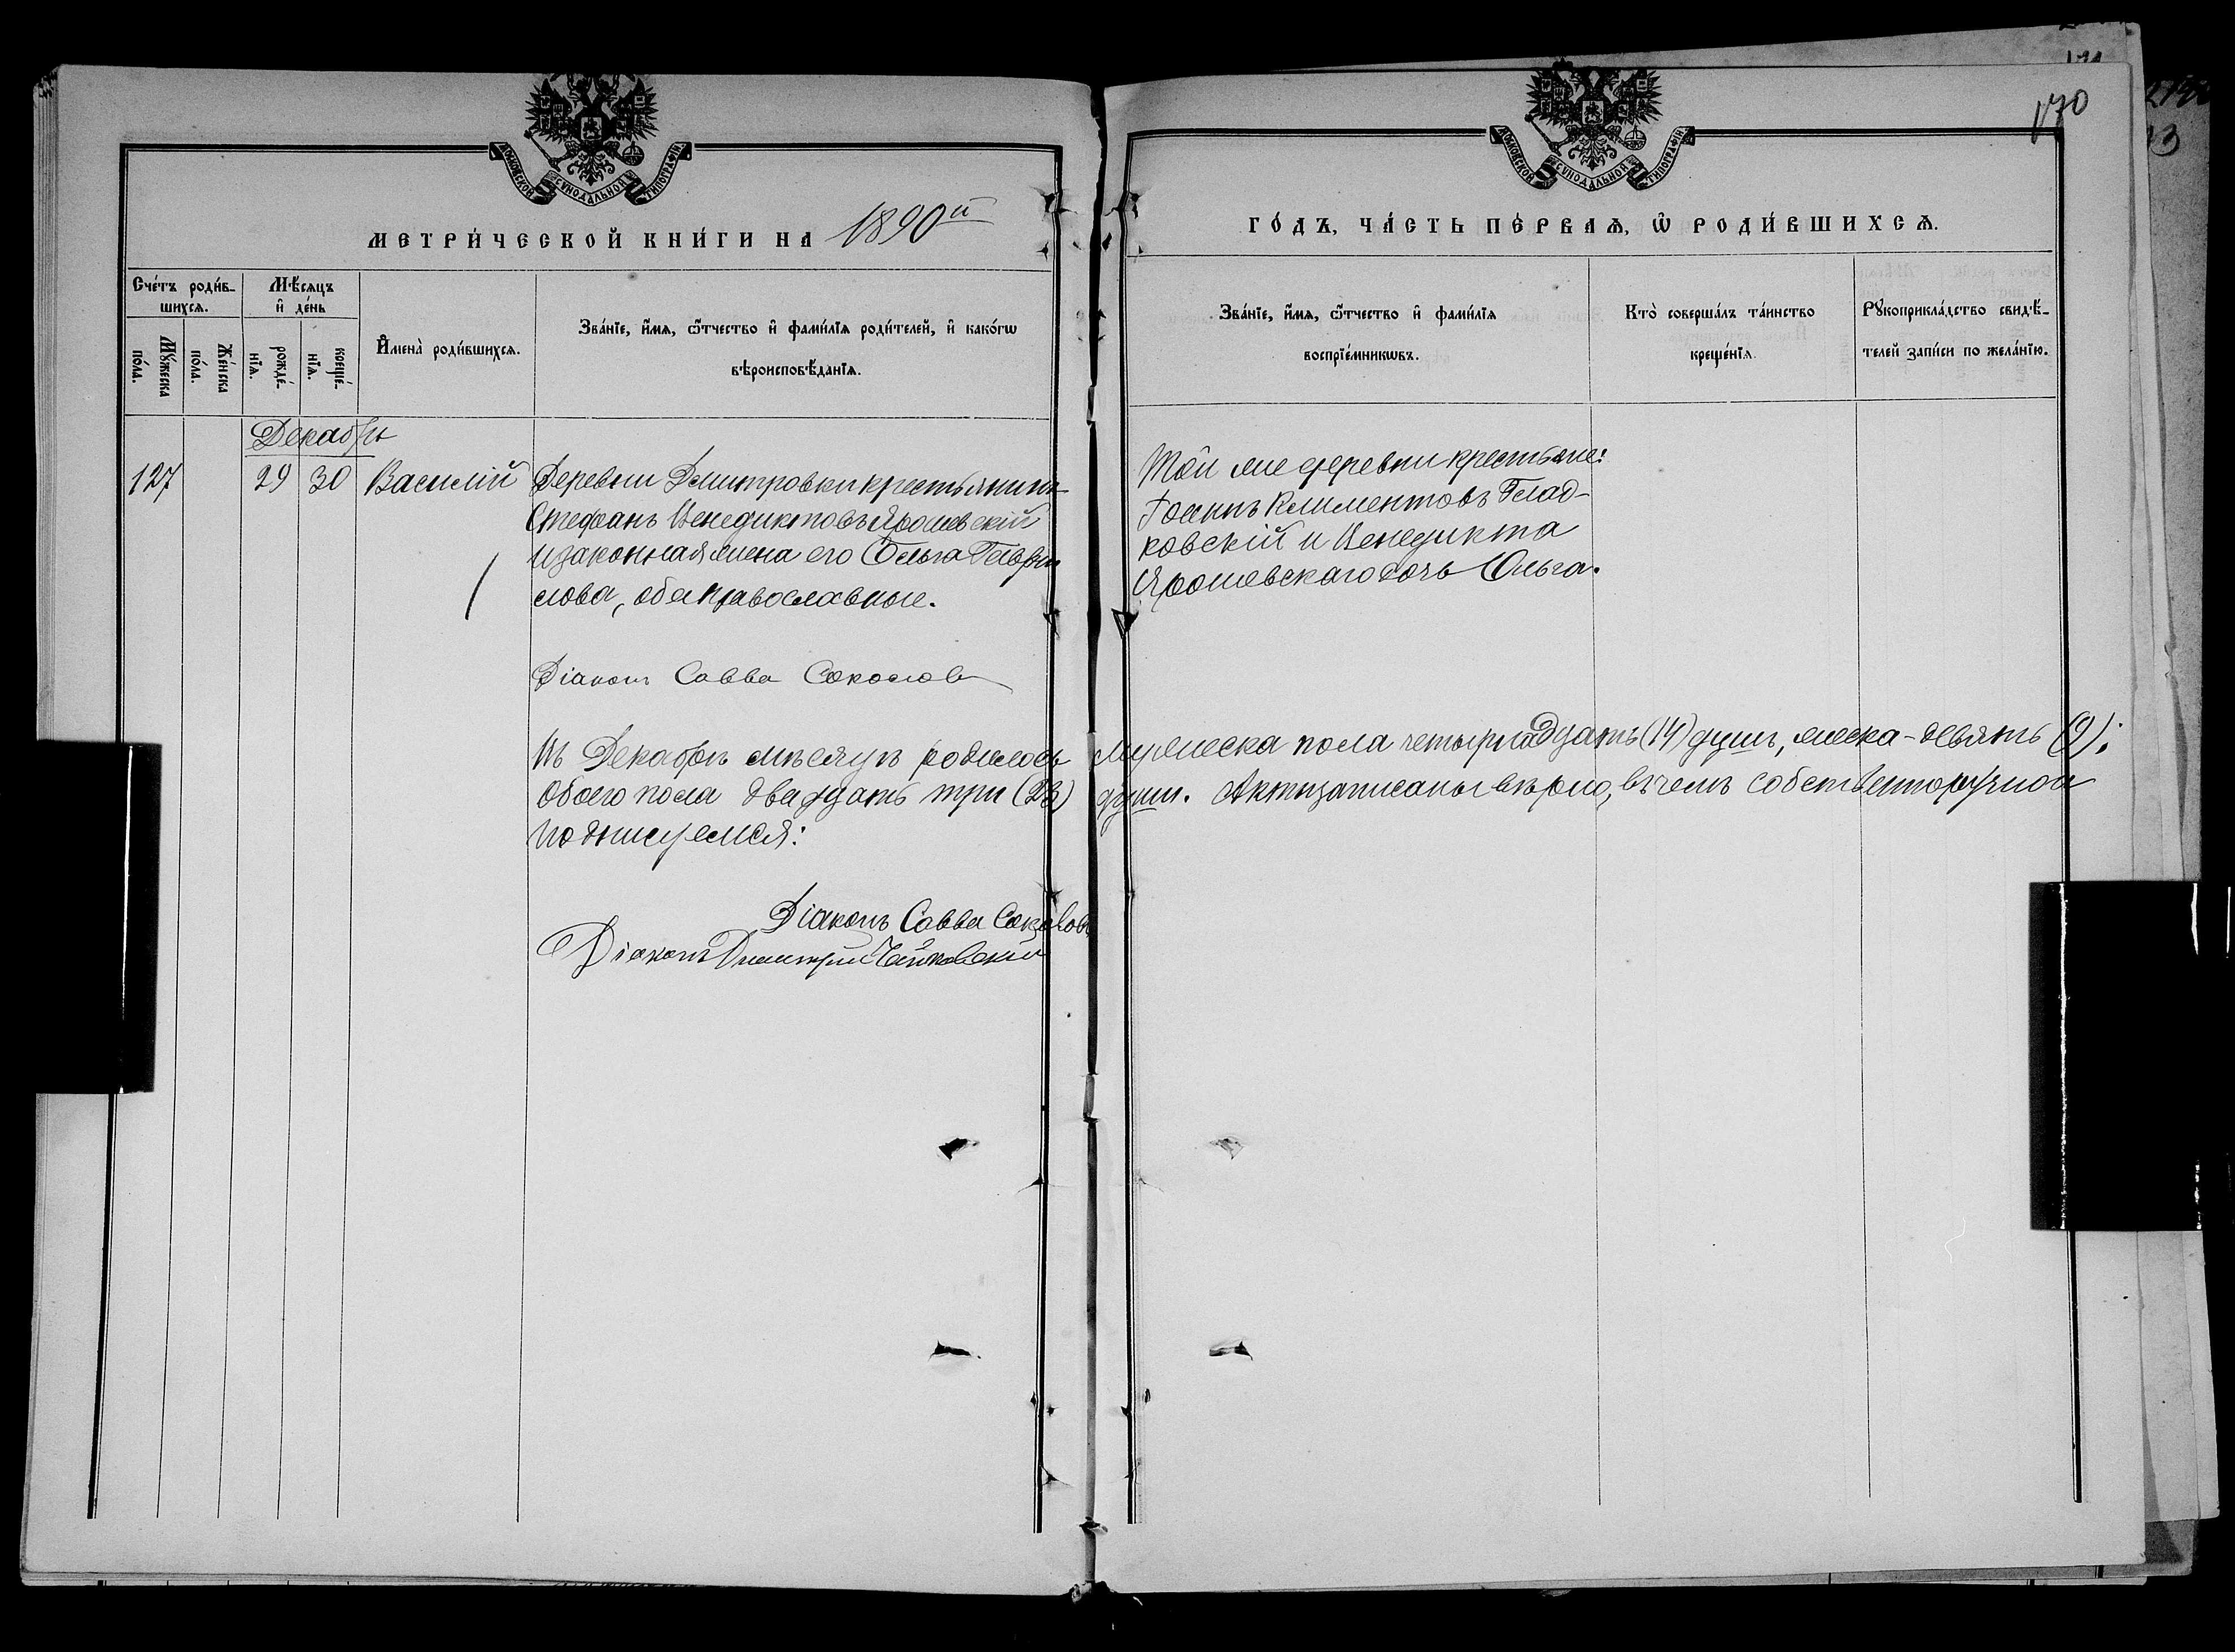 170
МОСКОВСКОЙ СѴНОДАЛЬНОЙ ТИПОГРАФІИ
МОСКОВСКОЙ СѴНОДАЛЬНОЙ ТИПОГРАФІИ
МЕТРИ́ЧЕСКОЙ КНИ́ГИ НА 1890й
ГО́ДЪ, ЧА́СТЬ ПЕ́РВАѦ, Ѽ РОДИ́ВШИХСѦ.
Сче́тъ роди́в-
шихсѧ.
Мꙋ́жеска
по́ла.
Же́нска
по́ла.
Мѣ́сѧцъ
и҆ де́нь
рожде́-
нїѧ.
креще́-
нїѧ.
И҆мена̀ роди́вшихсѧ.
Зва́нїе, и҆́мѧ, ѻ҆́тчество и҆ фами́лїѧ роди́телей, и҆ како́гѡ
вѣроисповѣ́данїѧ.
Зва́нїе, и҆́мѧ, ѻ҆́тчество и҆ фами́лїѧ
воспрїе́мникѡвъ.
Кто̀ соверша́лъ та́инство
креще́нїѧ.
Рꙋкоприкла́дство свидѣ́-
телей за́писи по жела́нїю.
Декабрь
127 29 30 Василій Деревни Дмитровки крестьянинъ
Стефанъ Венедиктовъ Ярошевскій
и законная жена его Ольга Гаври
лова, оба православные.
Той же деревни крестьяне:
Іоаннъ Климентовъ Глад-
ковскій и Венедикта
Ярошевскаго дочь Ольга.
Діаконъ Савва Соколов
Въ Декабрѣ мѣсяцѣ родилось мужеска пола четырнадцать (14) душъ, женска - девять (9);
обоего пола двадцать три (23) души. Акты записаны вѣрно, въ чемъ собственноручно и
подписуемся:
Діаконъ Савва Соколовъ
Діаконъ Димитрій Чайковскій